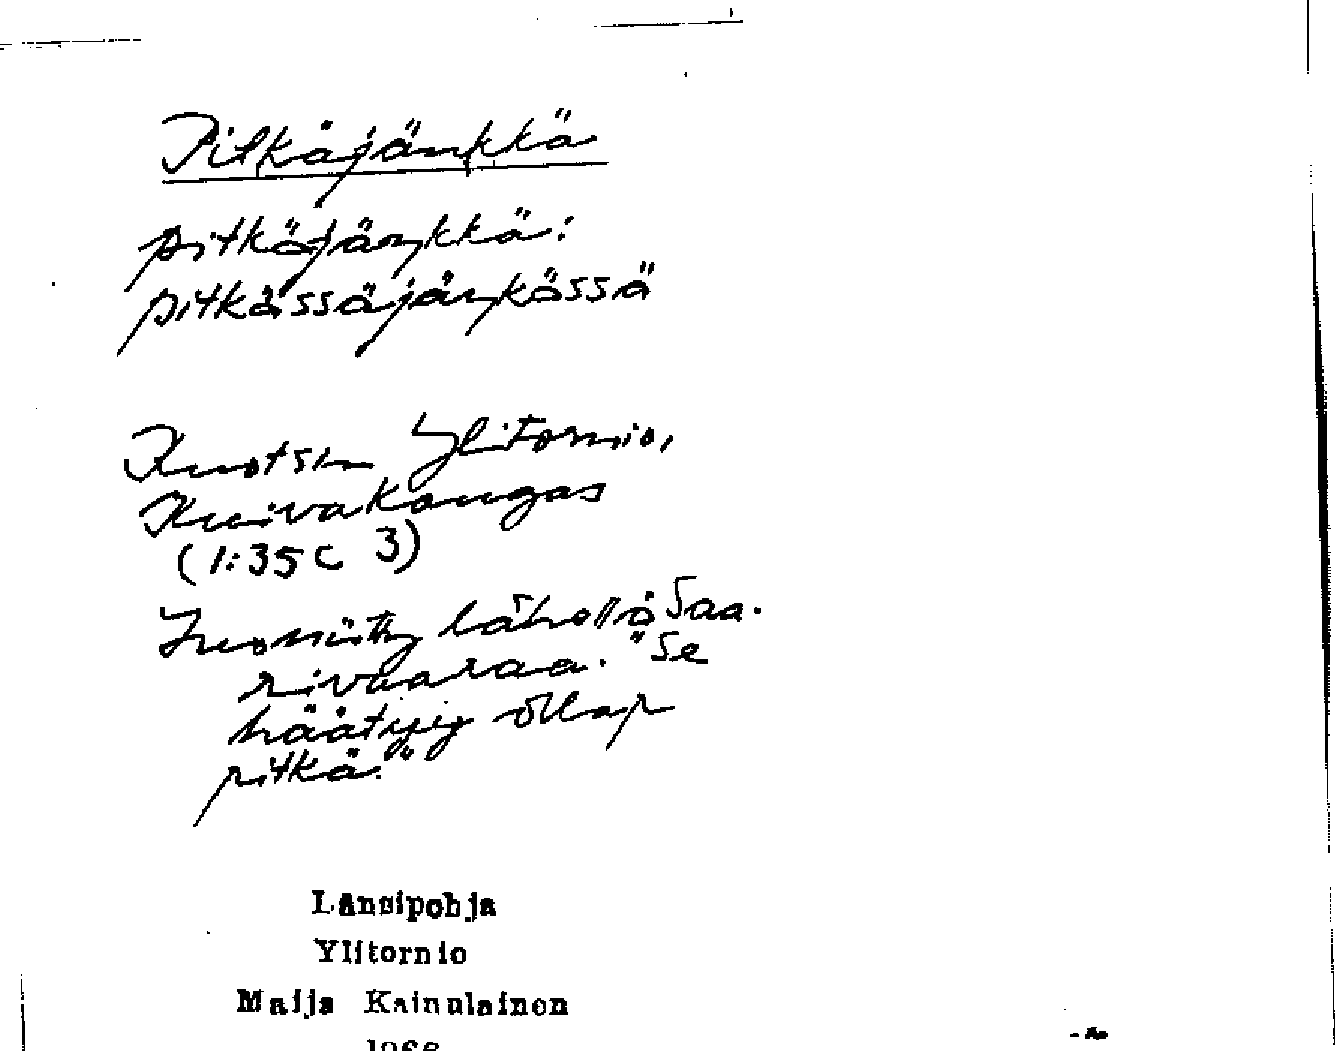 Pitkäjänkkä
pitkäjäŋkkä:
pitkässäjäŋkässä
Ruotsin Ylitornio,
Kuivakangas
(1:35 C 3)
lähellä Saa-
rivaaraa. "Se
häätyy ollap
pitkä."
Länsipohja
Ylitornio
Maija Kainulainen
1966